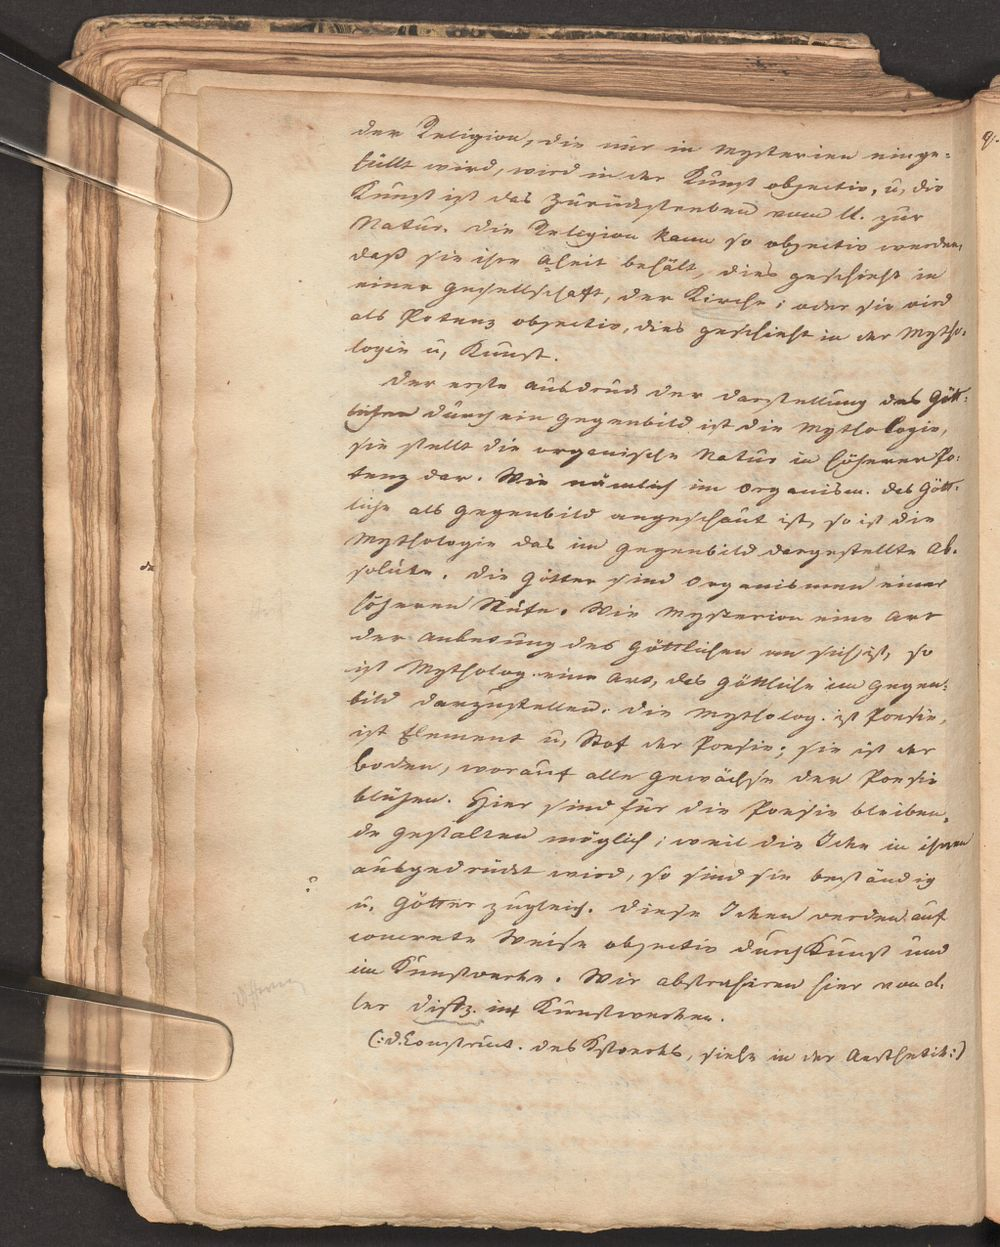 der Religion, die nur in Mysterien einge-
hüllt wird, wird in der Kunst objectiv, u, die
Kunst ist das Zurückstreben vom U. zur
Natur. Die Religion kann so objectiv werden,
daß sie ihre Aheit behält, dies geschieht in
einer Gesellschaft, der Kirche; oder sie wird
als Potenz objectiv, dies geschieht in der Mytho-
logie u, Kunst.
Der erste Ausdruck der Darstellung des Gött-
lichen durch ein Gegenbild ist die Mythologie,
sie stellt die organische Natur in höherer Po-
tenz dar. Wie nämlich im Organism. das Gött-
liche als Gegenbild angeschaut ist, so ist die
Mythologie das im Gegenbild dargestellte Ab-
solute. Die Götter sind Organismen einer
höheren Stufe. Wie Mysterien eine Art
der Anbetung des Göttlichen an sich ist, so
ist Mytholog. eine Art, das Göttliche im Gegen-
bild darzustellen. Die Mytholog. ist Poesie,
ist Element u, Stof der Poesie; sie ist der
Boden, worauf alle Gewächse der Poesie
blühen. Hier sind für die Poesie bleiben-
de Gestalten möglich; weil die Idee in ihnen
ausgedrückt wird, so sind sie beständig
u. Götter zugleich. Diese Ideen werden auf
concrete Weise objectiv durch Kunst und
im Kunstwerke. Wir abstrahiren hier von al-
ler Diffz. im Kunstwerken.
(: d. Construct. des Kstwerks, siehe in der Aesthetik :)